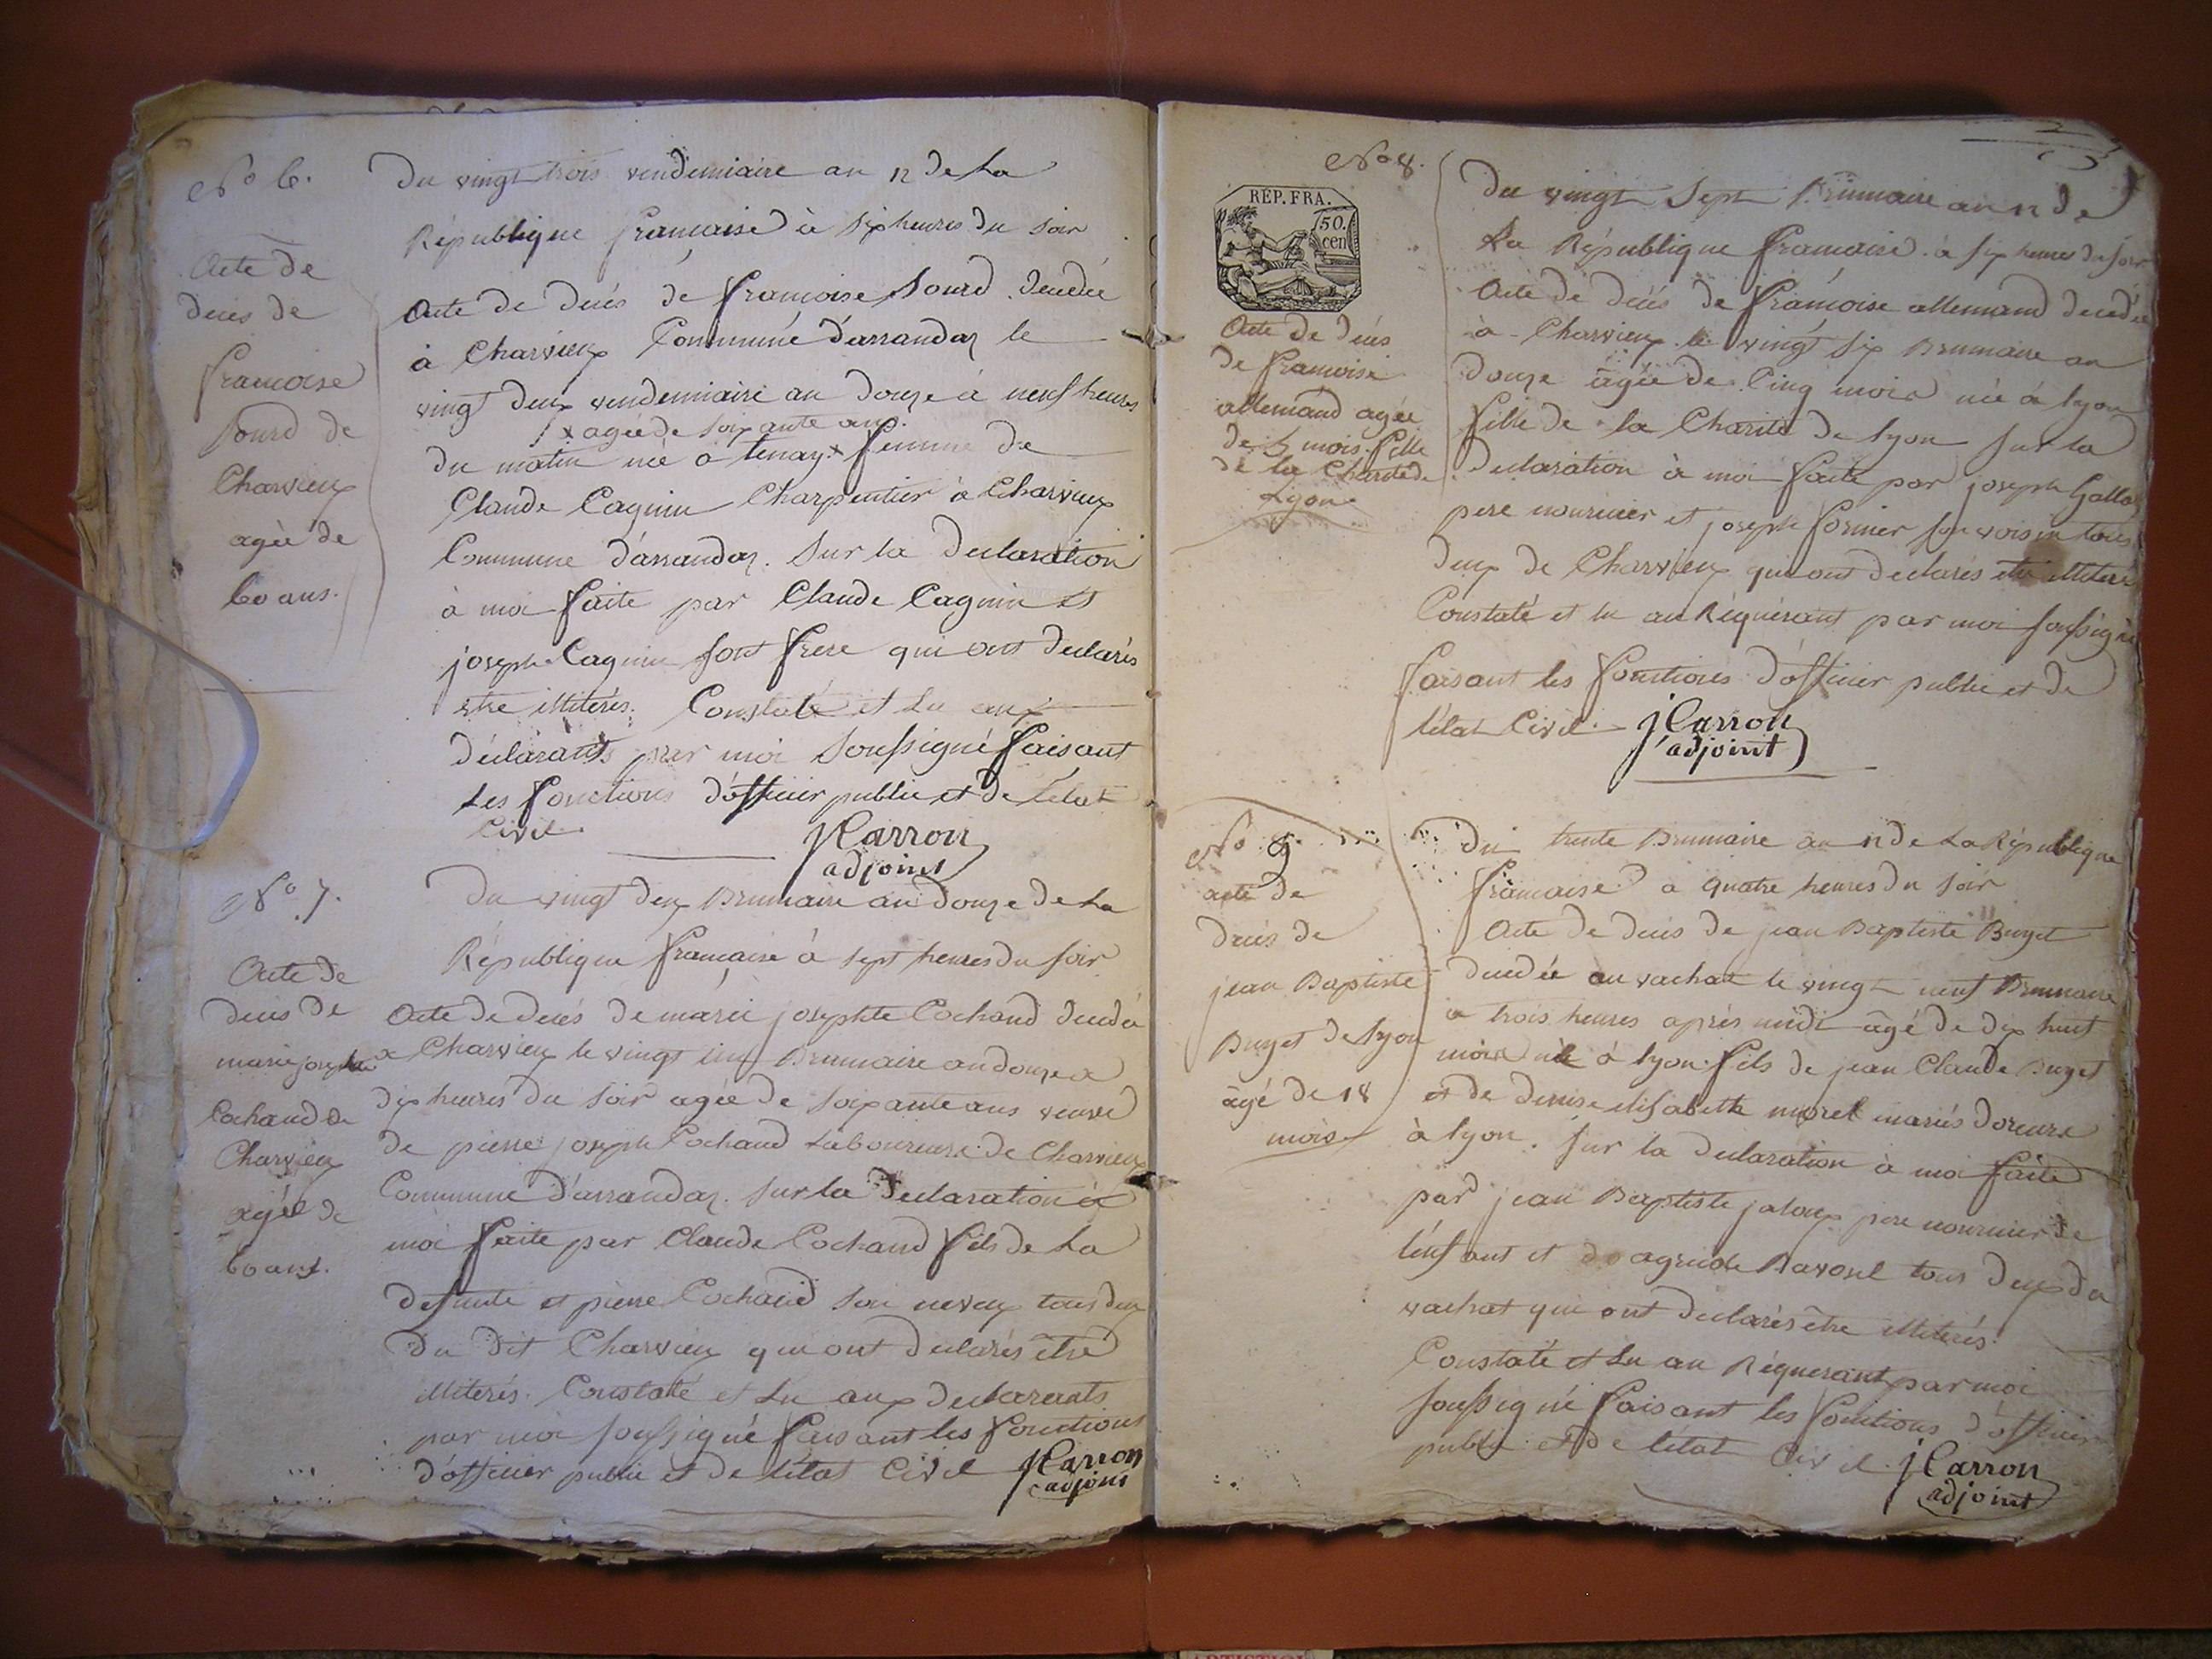 No 6.
Acte de
deces de
francoise
Sourd de
Charvieux
agée de
60 ans.
Du vingt trois vendemiaire an 12 de La
République francaise à six heures du soir
Acte de decés de francoise Sourd decedée
à Charvieux Commune d'arrandaz le
vingt deux vendemiaire an douze à neuf heures
x agée de soixante ans.
du matin née à tenay x femme de
Claude Cagnin Charpentier à Charvieux
Commune d'arrandaz. Sur la declaration
à moi faite par Claude Cagnin et
joseph Cagnin sont frere qui ont declarés
etre illiterés. Constaté et Lu aux
déclarants par moi Soussigné faisant
Les fonctions d'officier public et de l'état
Civil.
JCarron
adjoint
No 7.
Acte de
deces de
marie josephte
Cochand de
Charvieux
agée de
60 ans.
Du vingt deux Brumaire an douze de La
République francaise à sept heures du soir
Acte de decés de marie josephte Cochand decedée
a Charvieux le vingt un Brumaire an douze a
dix heures du soir agée de soixante ans veuve
de pierre joseph Cochand Laboureur de Charvieux
Commune d'arrandaz. Sur la declaration à
moi faite par Claude Cochand fils de La
defunte et pierre Cochand son neveux tous deux
du dit Charvieux qui ont declarés être
illiterés. Constaté et Lu aux declarants
par moi soussigné faisant les fonctions
d'officier public et de l'état Civil JCarron
adjoint
No 8.
RÉP. FRA.
50.
cen
Acte de decés
de francoise
allemand agée
de 5 mois. fille
de la Charité de
Lyon
Du vingt Sept Brumaire an 12 de
La République francaise à six heures du soir
Acte de decés de francoise allemand decedée
à Charvieux le vingt six Brumaire an
douze âgée de Cinq mois née à lyon
fille de la Charité de lyon Sur la
declaration à moi faite par joseph Gallo
pere nouricier et joseph fornier son voisin tous
deux de Charvieux qui ont declarés etre illiteré
Constaté et lu au Réquérant par moi soussigné
faisant les fonctions d'officier public et de
l'état Civil. JCarron
adjoint
No 9.
acte de
decés de
jean Baptiste
Buget de lyon
âgé de 18
mois
Du trente Brumaire an 12 de La République
francaise à quatre heures du soir
Acte de decés de jean Baptiste Buget
decedée au vachat le vingt neuf Brumaire
à trois heures après midi âgé de dix huit
mois né à lyon fils de jean Claude Buget
et de denise elisabeth morel mariés doreurs
à lyon. Sur la declaration à moi faite
par jean Baptiste jaloux pere nouricier de
l'enfant et Ravosel tous deux du
vachat qui ont declarés être illiterés.
Constaté et Lu au Réquerant par moi
soussigné faisant les fonctions d'officier
public et de l'état Civil. JCarron
adjoint